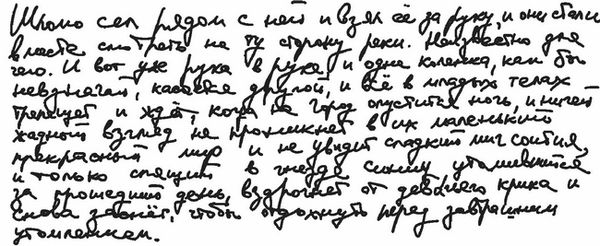 Шломо сел рядом с ней и взял её за руку, и они стали
вместе смотреть на ту сторону реки. Неизвестно для
чего. И вот уже рука в руке и одна коленка, как бы
невзначай, касается другой, и всё в младых телах
трепещет и ждёт, когда на город опустится ночь, и ничей
жадный взгляд не проникнет в их маленький
прекрасный мир и не увидит сладкий миг соития,
и только спящий в гнезде синиц, утомившийся
за прошедший день, вздрогнет от девичьего крика и
снова заснёт, чтобы отдохнуть перед завтрашним
утомлением.